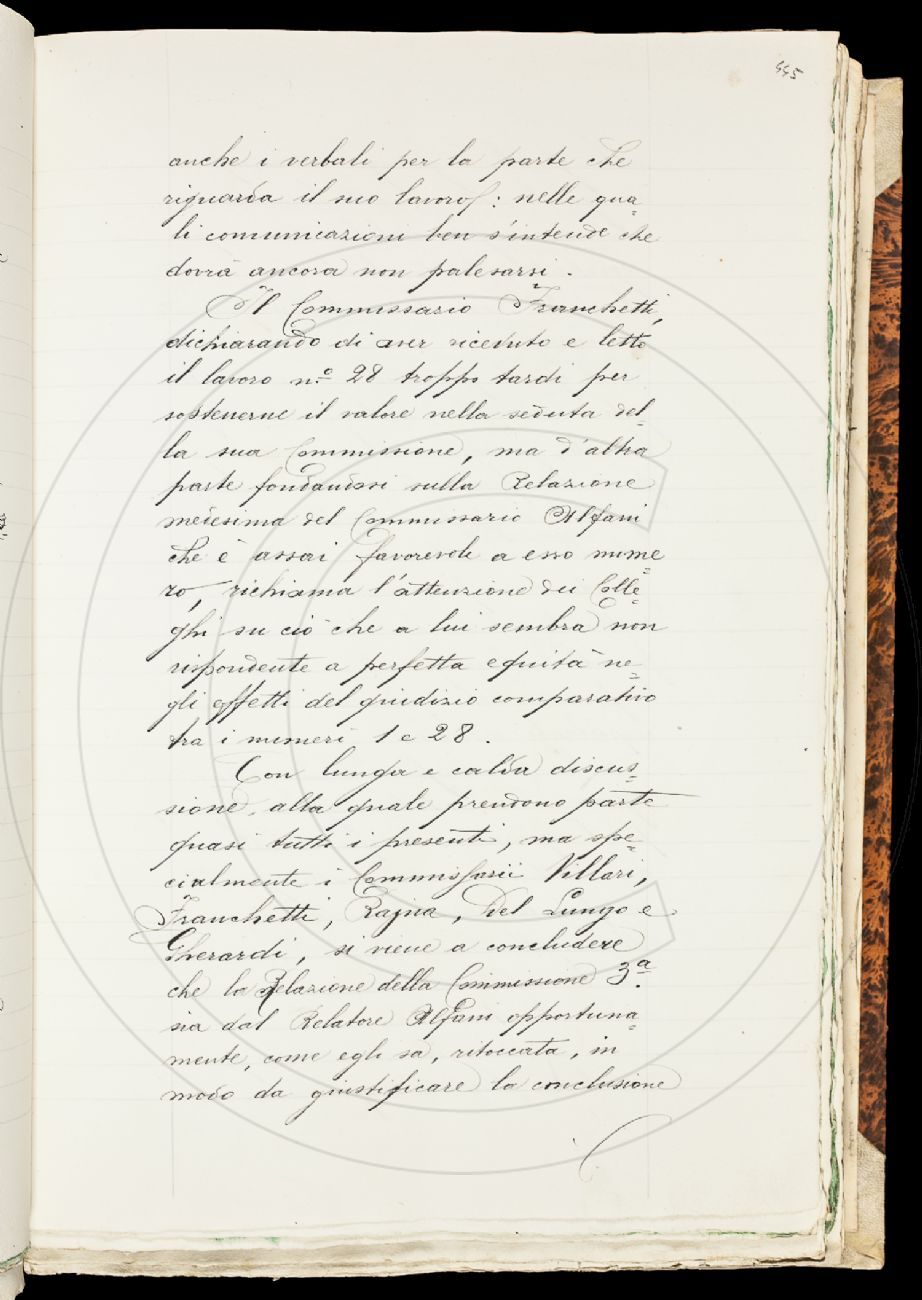 445
anche i verbali per la parte che
riguarda il suo lavoro: nelle qua=
li comunicazioni ben s'intende che
dovrà ancora non palesarsi.
Il Commissario Franchetti,
dichiarando di aver ricevuto e letto
il lavoro n.º 28 troppo tardi per
sostenerne il valore nella seduta del=
la sua Commissione, ma d'altra
parte fondandosi sulla Relazione
medesima del Commissario Alfani
che è assai favorevole a esso nume=
ro, richiama l'attenzione dei Colle=
ghi su ciò che a lui sembra non
rispondente a perfetta equità ne=
gli effetti del giudizio comparativo
tra i numeri 1 e 28.
Con lunga e calda discus=
sione, alla quale prendono parte
quasi tutti i presenti, ma spe=
cialmente i Commissarii Villari,
Franchetti, Rajna, Del Lungo e
Gherardi, si viene a concludere
che la Relazione della Commissione 3ª.
sia dal Relatore Alfani opportuna=
mente, come egli sa, ritoccata, in
modo da giustificare la conclusione